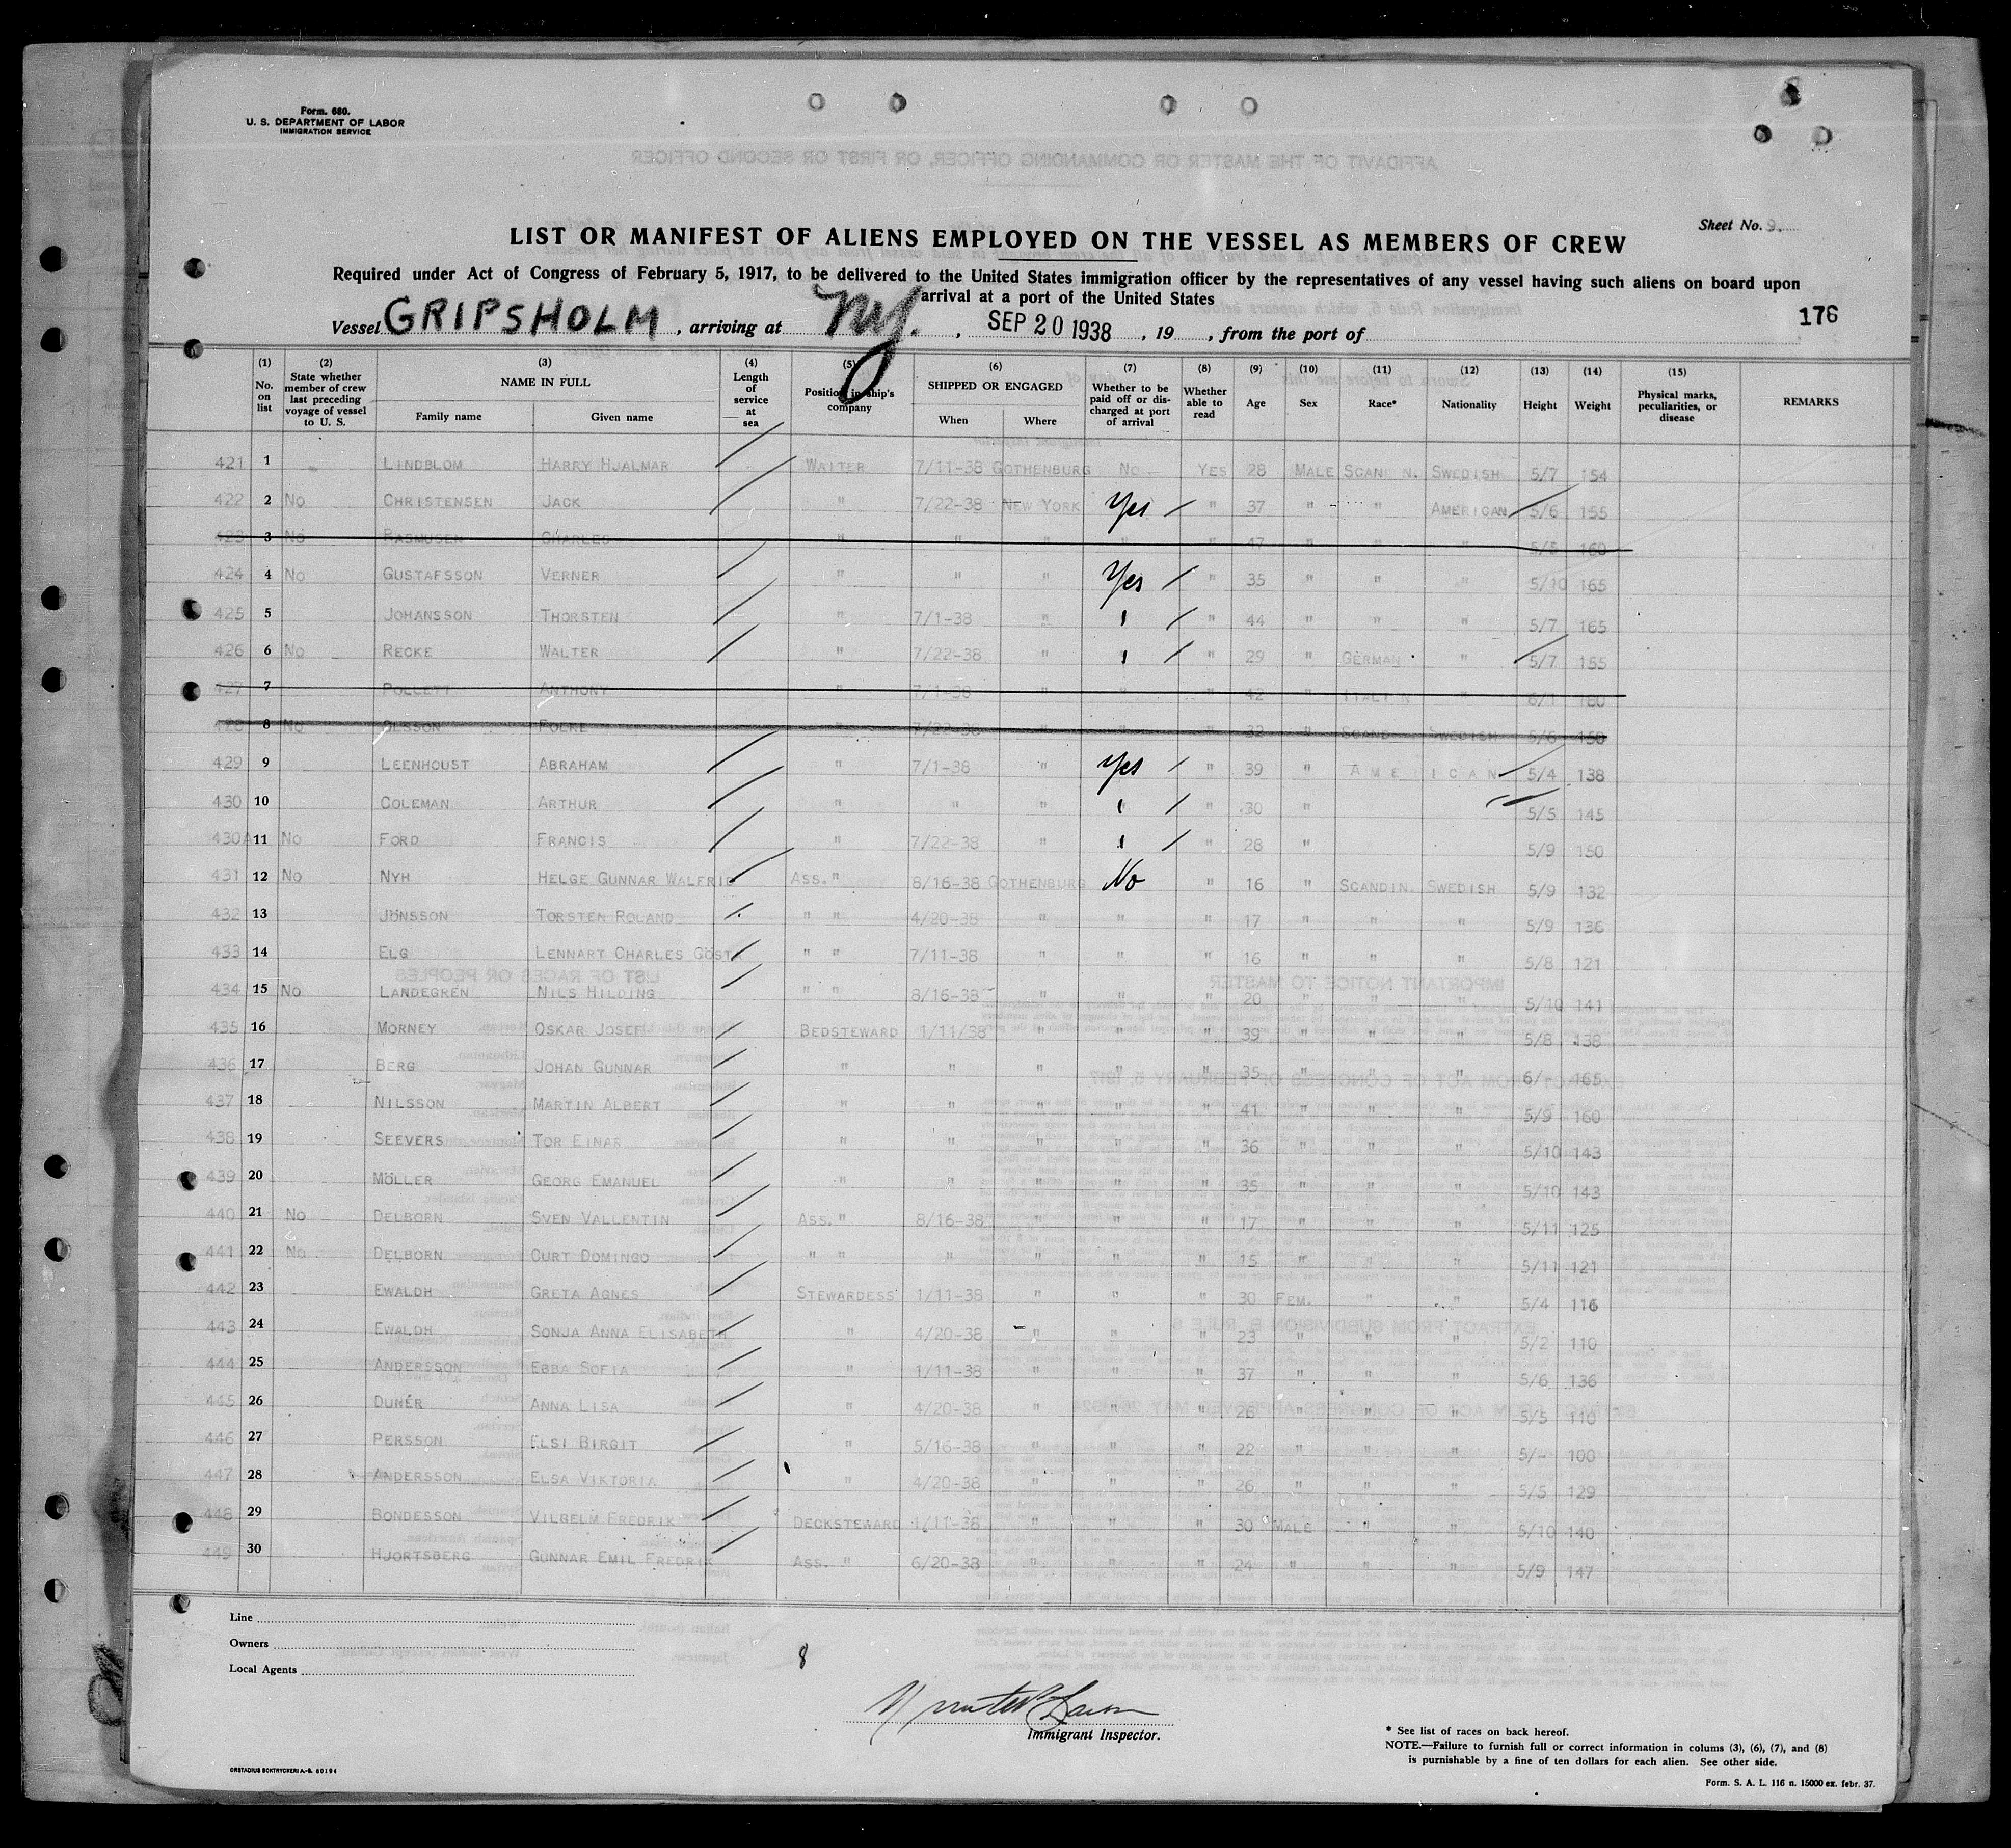 Form. 680.
U. S. DEPARTMENT OF LABOR
IMMIGRATION SERVICE
Sheet No. 9.
LIST OR MANIFEST OF ALIENS EMPLOYED ON THE VESSEL AS MEMBERS OF CREW
Required under Act of Congress of February 5, 1917, to be delivered to the United States immigration officer by the representatives of any vessel having such aliens on board upon
arrival at a port of the United States
176
Vessel GRIPSHOLM , arriving at NY. , SEP 20 1938 , 19 , from the port of
(1) (2) (3) (4) (5) (6) (7) (8) (9) (10) (11) (12) (13) (14) (15)
No. on list State whether member of crew last preceding voyage of vessel to U. S. NAME IN FULL Family name Given name Length of service at sea Position in ship's company SHIPPED OR ENGAGED When Where Whether to be paid off or discharged at port of arrival Whether able to read Age Sex Race* Nationality Height Weight Physical marks, peculiarities, or disease REMARKS
421 1 LINDBLOM HARRY HJALMAR WAITER 7/11-38 GOTHENBURG No YES 28 MALE SCANDIN. SWEDISH 5/7 154
422 2 No CHRISTENSEN JACK " 7/22-38 NEW YORK Yes " 37 " " AMERICAN 5/6 155
423 3 No RASMUSEN CHARLES " " " " " 47 " " " 5/5 160
424 4 No GUSTAFSSON VERNER " " " Yes " 35 " " " 5/10 165
425 5 JOHANSSON THORSTEN " 7/1-38 " " " 44 " " " 5/7 165
426 6 No RECKE WALTER " 7/22-38 " " " 29 " GERMAN " 5/7 155
427 7 POLLETT ANTHONY " 7/1-38 " " " 42 " ITALI N " 6/1 180
428 8 No OLSSON FOLKE " 7/22-38 " " " 32 " SCAND SWEDISH 5/6 150
429 9 LEENHOUST ABRAHAM " 7/1-38 " Yes " 39 " AME ICAN 5/4 138
430 10 COLEMAN ARTHUR " " " " " 30 " 5/5 145
430A 11 No FORD FRANCIS " 7/22-38 " " " 26 " 5/9 150
431 12 No NYH HELGE GUNNAR WALFRID ASS. " 8/16-38 GOTHENBURG No " 16 " SCANDIN. SWEDISH 5/9 132
432 13 JÖNSSON TORSTEN ROLAND " " 4/20-38 " " " 17 " " " 5/9 136
433 14 ELG LENNART CHARLES GÖSTA " " 7/11-38 " " " 16 " " " 5/8 121
434 15 No LANDEGREN NILS HILDING " " 8/16-38 " " " 20 " " " 5/10 141
435 16 MORNEY OSKAR JOSEF BEDSTEWARD 1/11/38 " " " 39 " " " 5/8 138
436 17 BERG JOHAN GUNNAR " " " " " 35 " " " 6/- 165
437 18 NILSSON MARTIN ALBERT " " " " " 41 " " " 5/9 160
438 19 SEEVERS TOR EINAR " " " " " 36 " " " 5/10 143
439 20 MÖLLER GEORG EMANUEL " " " " " 35 " " " 5/10 143
440 21 No DELBORN SVEN VALLENTIN ASS. " 8/16-38 " " " 17 " " " 5/11 125
441 22 No DELBORN CURT DOMINGO " " " " " " 15 " " " 5/11 121
442 23 EWALDH GRETA AGNES STEWARDESS 1/11-38 " " " 30 FEM. " " 5/4 116
443 24 EWALDH SONJA ANNA ELISABETH " 4/20-38 " " " 23 " " " 5/2 110
444 25 ANDERSSON EBBA SOFIA " 1/11-38 " " " 37 " " " 5/6 136
445 26 DUNÉR ANNA LISA " 4/20-38 " " " 26 " " " 5/5 110
446 27 PERSSON ELSI BIRGIT " 5/16-38 " " " 22 " " " 5/- 100
447 28 ANDERSSON ELSA VIKTORIA " 4/20-38 " " " 26 " " " 5/5 129
448 29 BONDESSON VILHELM FREDRIK DECKSTEWARD 1/11-38 " " " 30 MALE " " 5/10 140
449 30 HJORTSBERG GUNNAR EMIL FREDRIK ASS. " 6/20-38 " " " 24 " " " 5/9 147
Line
Owners
Local Agents
8
Immigrant Inspector.
* See list of races on back hereof.
NOTE.—Failure to furnish full or correct information in colums (3), (6), (7), and (8)
is punishable by a fine of ten dollars for each alien. See other side.
ORSTADIUS BOKTRYCKERI A.-B. 60194
Form. S. A. L. 116 n. 15000 ex. febr. 37.